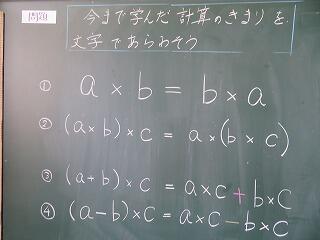 問題
今まで学んだ計算のきまりを
文字であらわそう
① a × b = b × a
② (a × b) × c = a × (b × c)
③ (a + b) × c = a × c + b × c
④ (a - b) × c = a × c - b × c